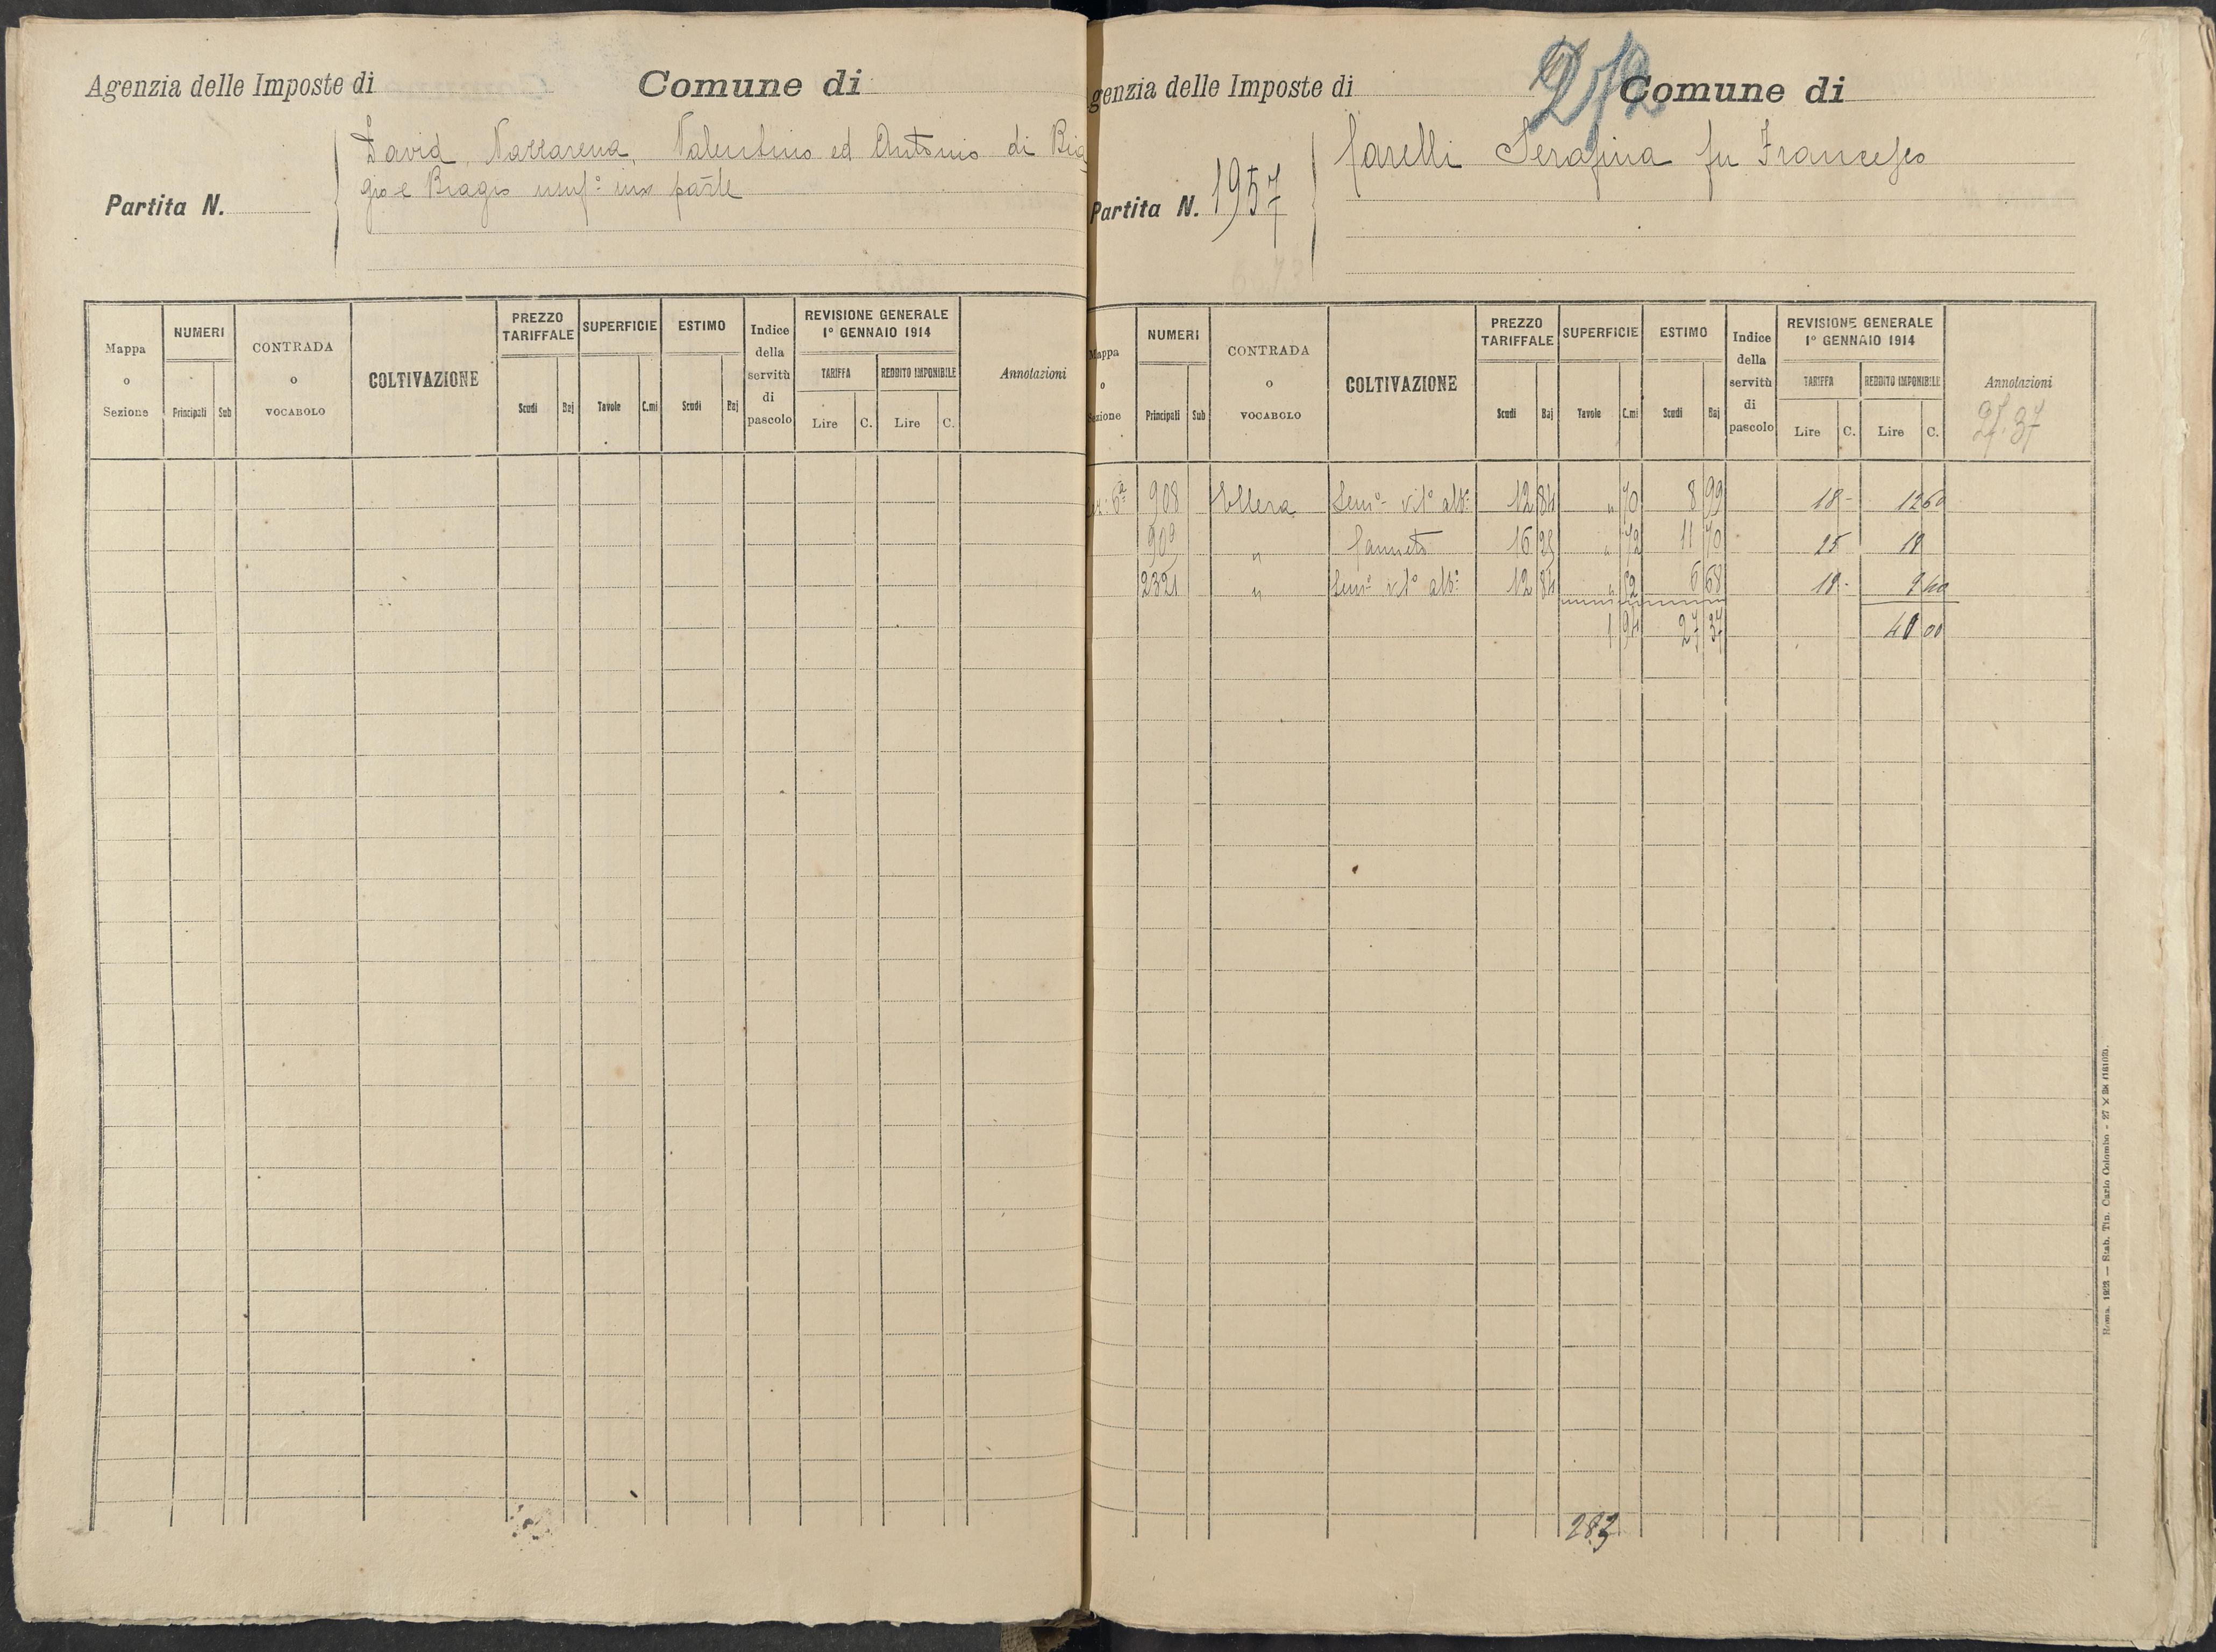 Agenzia delle Imposte di
Comune di
David, Nazzarena, Valentino ed Antonio di Bia
gio e Biagio usuf.o in parte
Partita N.
Mappa o Sezione
NUMERI
Principali Sub
CONTRADA o VOCABOLO
COLTIVAZIONE
PREZZO TARIFFALE
Scudi Baj
SUPERFICIE
Tavole C.mi
ESTIMO
Scudi Baj
Indice della servitù di pascolo
REVISIONE GENERALE 1° GENNAIO 1914
TARIFFA
Lire C.
REDDITO IMPONIBILE
Lire C.
Annotazioni
272
genzia delle Imposte di
Comune di
Carelli Serafina fu Francesco
Partita N. 1957
Mappa o Sezione
NUMERI
Principali Sub
CONTRADA o VOCABOLO
COLTIVAZIONE
PREZZO TARIFFALE
Scudi Baj
SUPERFICIE
Tavole C.mi
ESTIMO
Scudi Baj
Indice della servitù di pascolo
REVISIONE GENERALE 1° GENNAIO 1914
TARIFFA
Lire C.
REDDITO IMPONIBILE
Lire C.
Annotazioni
27.37
6a 908 Ellera Sem.o vit.o alb.o 12 84 " 70 8 99 18 - 12 60
909 " Canneto 16 25 " 72 11 70 25 18
2321 " Sem.o vit.o alb.o 12 84 " 52 6 68 18 - 9 40
1 94 27 37 40 00
283
Roma, 1923 — Stab. Tip. Carlo Colombo - 27 X